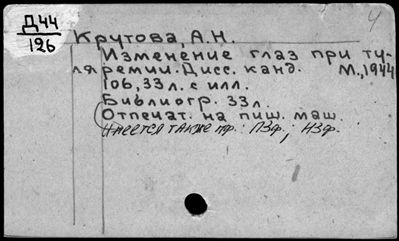 Д44
126
4
Крутова, А.Н.
Изменение глаз при ту-
ляремии. Дисс. канд. М., 1944
106, 33 л. с илл.
Библиогр. 33 л.
Отпечат. на пиш. маш.
Имеется также пф.: ПЗф.; НЗф.